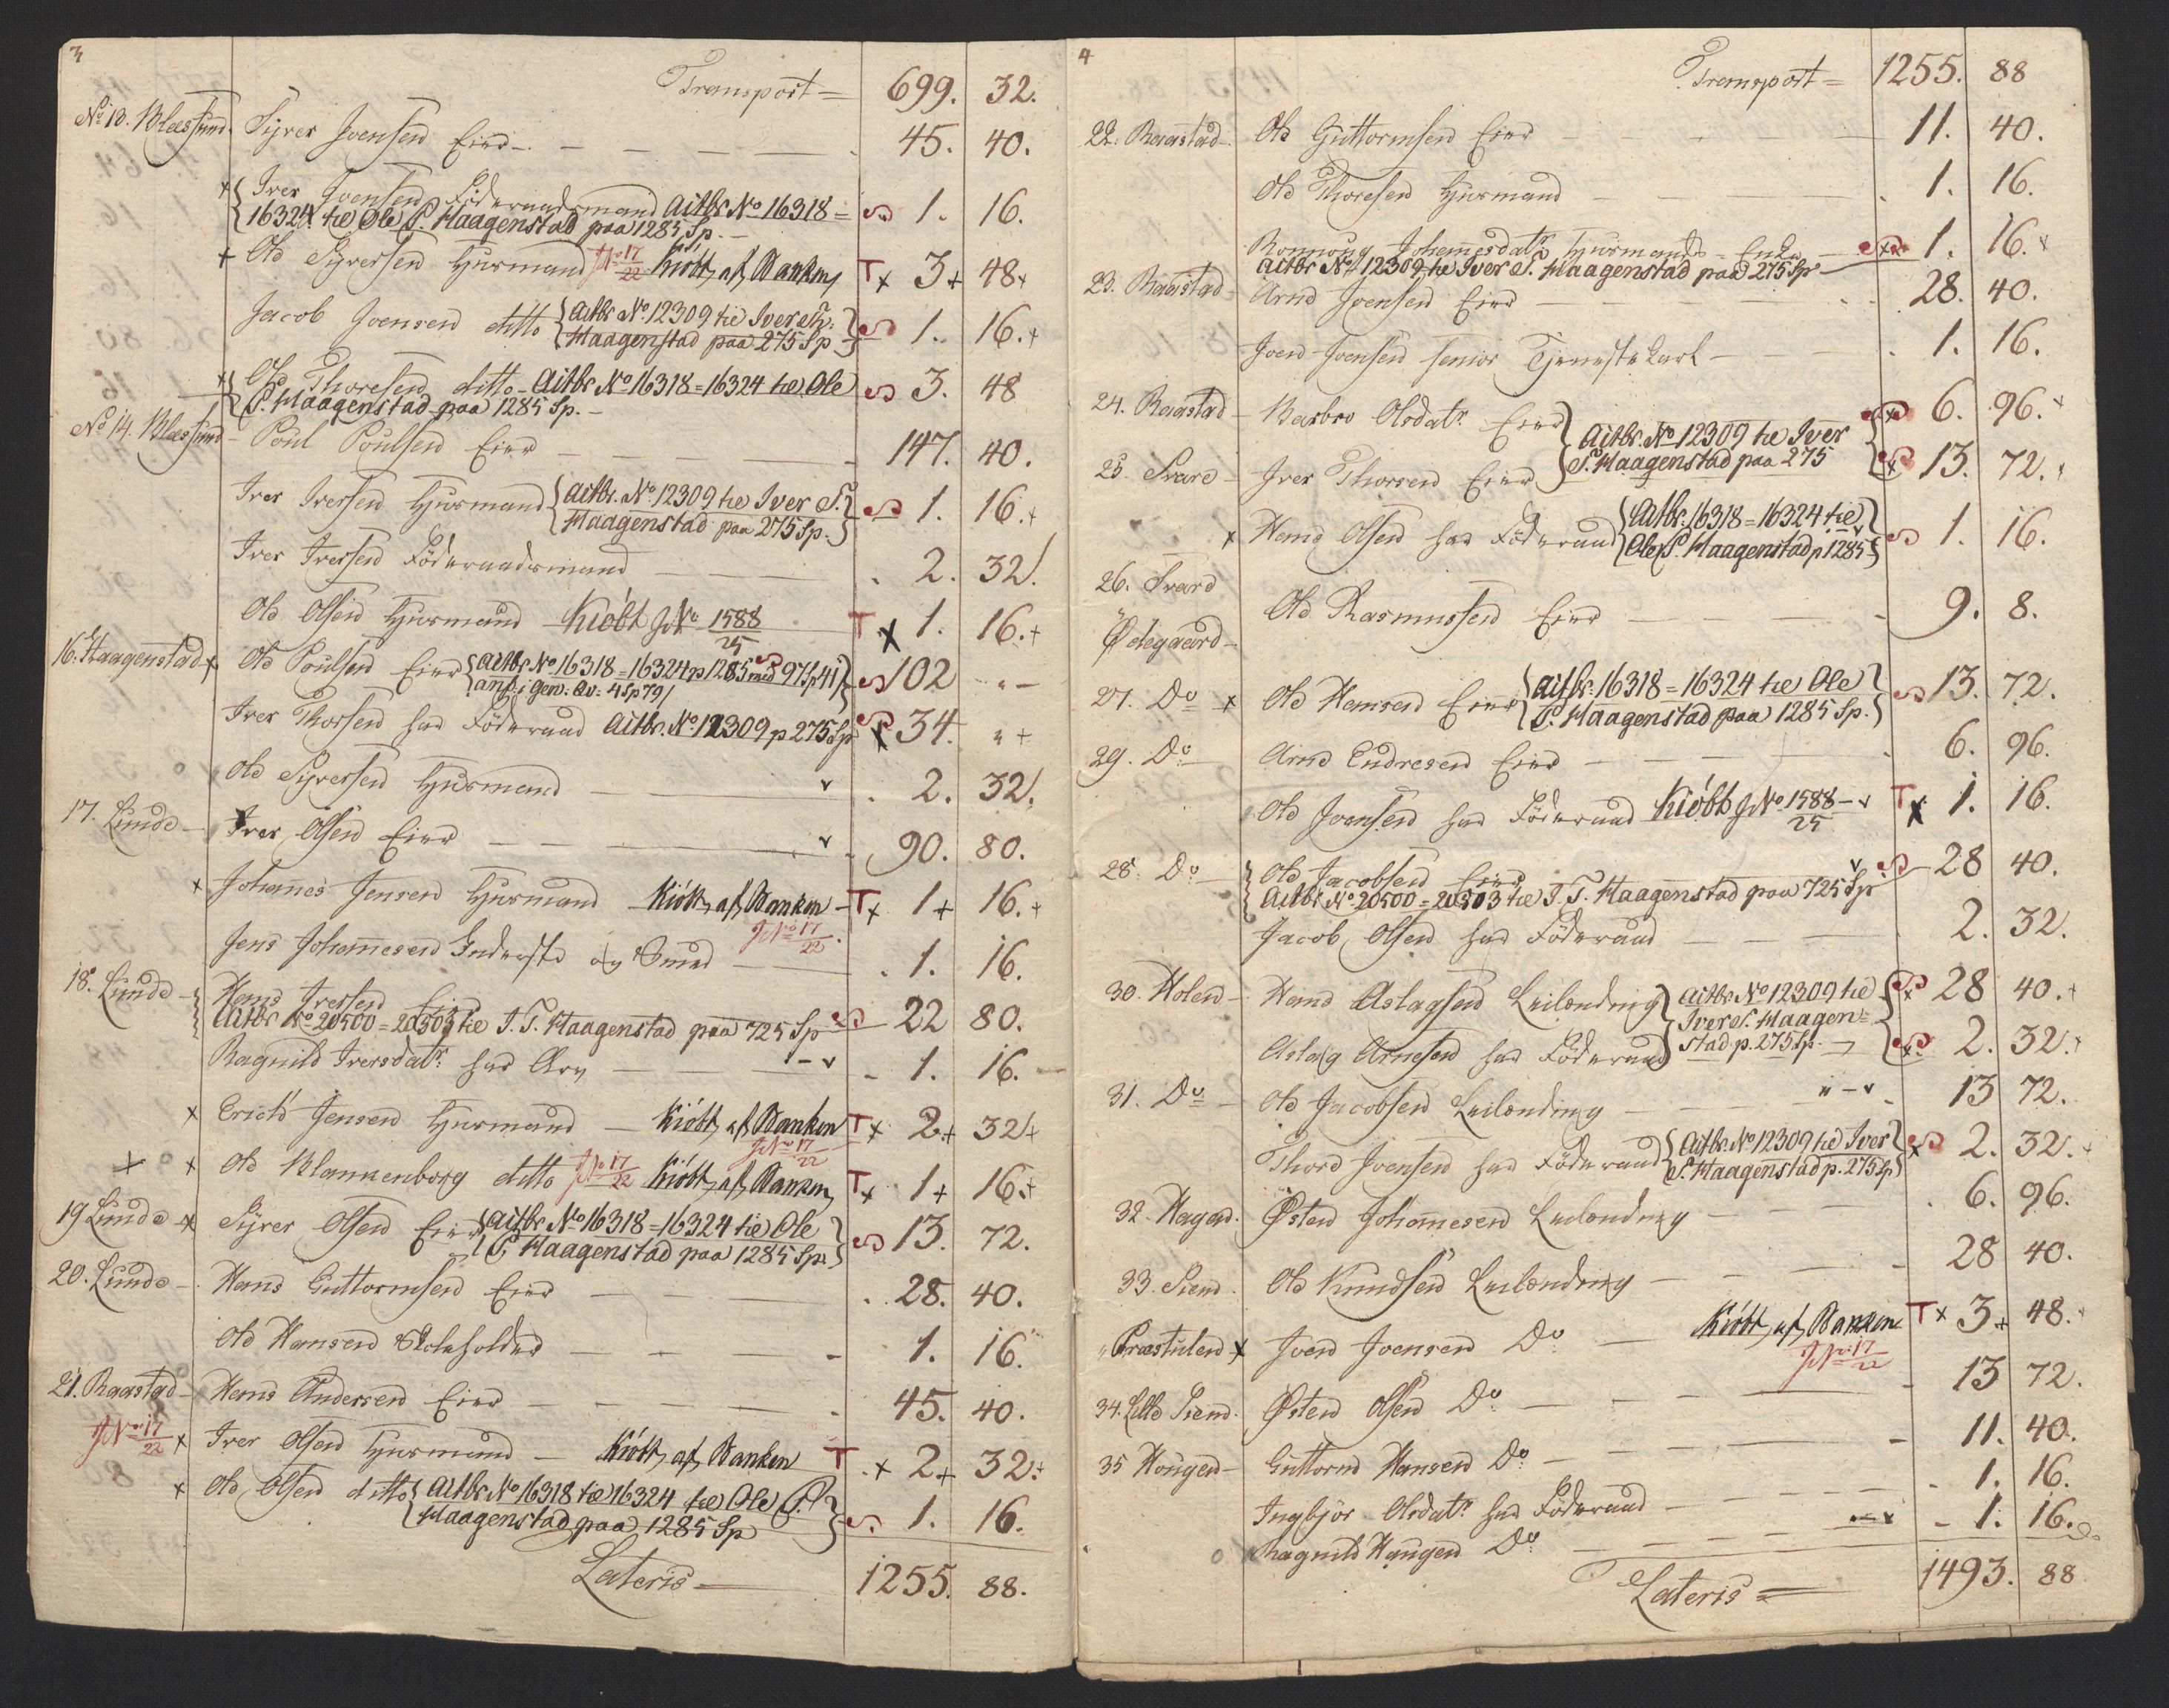 3
Transport = 699. 32.
No 13. Blessund. Syver Joensen Eier - 45. 40.
Iver Joensen Föderaadsmand Actbr No 16318 =
16324 til Ole P. Haagenstad paa 1285 Sp. - 1. 16.
+ Ole Syversen Huusmand JNo 17/22 Kiöbt af Banken T x 3 + 48 +
Jacob Joensen ditto Actbr No 12309 til Iver Th:
Haagenstad paa 275 Sp - 1. 16. +
Ole Thoresen ditto - Actbr No 16318 = 16324 til Ole
P. Haagenstad paa 1285 Sp. - 3. 48
No 14. Blessund - Poul Poulsen Eier - 147. 40.
Iver Iversen Huusmand Actbr. No 12309 til Iver T.
Haagenstad paa 275 Sp. 1. 16. +
Iver Iversen Föderaadsmand 2. 32.
Ole Olsen Huusmand Kiöbt JNo 1588/25 T x 1. 16. +
16. Haagenstad x Ole Poulsen Eier Actbr No 16318 = 16324 p 1285 med 97 Sp 41
anf. i Gen: Qv: 4 Sp 79 102 " -
Iver Thorsen har Föderaad Actbr. No 12309 p 275 Sp x 34. " +
Ole Syversen Huusmand v 2. 32.
17. Lunde - Iver Olsen Eier v 90. 80.
x Johannes Jensen Huusmand Kiöbt af Banken - T x 1 + 16. +
JNo 17/22
Jens Johannesen Inderste og Smed 1. 16.
18. Lunde - Hans Iversen Eier
Actbr No 20500 = 20503 til T. T. Haagenstad paa 725 Sp 22 80.
Ragnild Iversdatr. har Arv - v 1. 16.
x Erich Jensen Huusmand - Kiöbt af Banken T x 2 + 32 +
JNo 17/22
+ x Ole Blankenborg ditto JNo 17/22 Kiöbt af Banken, T x 1 + 16. +
19 Lunde - x Syver Olsen Eier Actbr No 16318 = 16324 til Ole
P. Haagenstad paa 1285 Sp. 13. 72.
20. Lunde - Hans Guttormsen Eier 28. 40.
Ole Hansen Skoleholder 1. 16.
21. Raastad - Hans Andersen Eier 45. 40.
JNo 17/22 x Iver Olsen Huusmand - Kiöbt af Banken T x 2 + 32. +
x Ole Olsen ditto Actbr No 16318 til 16324 til Ole P.
Haagenstad paa 1285 Sp 1. 16.
Lateris - 1255. 88.
4
Transport = 1255. 88
22. Raastad - Ole Guttormsen Eier 11. 40.
Ole Thoresen Huusmand 1. 16.
Ronnoug Johannesdatr Huusmands = Enke 1. 16. x
Actbr No 12309 til Iver T. Haagenstad paa 275 Sp -
23. Raastad - Arne Joensen Eier 28. 40.
Joen Joensen senior Tjenestekarl - 1. 16.
24. Raastad - Barbro Olsdatr. Eier x 6. 96. +
Actbr. No 12309 til Iver
T. Haagenstad paa 275
25 Svare - Iver Thorsen Eier x 13. 72. +
x Hans Olsen har Föderaad Actbr. 16318 = 16324 til
Ole P. Haagenstad p 1285 1. 16.
26. Svare
Ödegaard - Ole Rasmussen Eier 9. 8.
27. Do x Ole Hansen Eier Actbr. 16318 = 16324 til Ole
P. Haagenstad paa 1285 Sp. 13. 72.
29. Do - Arne Endresen Eier 6. 96.
Ole Joensen har Föderaad Kiöbt JNo 1588/25 - v T x 1. 16.
28. Do - Ole Jacobsen Eier v 28 40.
Actbr No 20500 = 20503 til T. T. Haagenstad paa 725 Sp
Jacob Olsen har Föderaad 2. 32.
30. Holen - Hans Aslagsen Leilænding Actbr No 12309 til x 28 40. +
Iver T. Haagen =
Aslag Arnesen har Föderaad stad p. 275 Sp. x 2. 32. +
31. Do - Ole Jacobsen Leilænding " - v 13 72.
Thore Joensen har Föderaad Actbr. No 12309 til Iver
T. Haagenstad p. 275 Sp x 2. 32. +
32. Hagen. Østen Johannesen Leilænding 6. 96.
33. Siem. Ole Knudsen Leilænding 28 40.
Præstulen x Joen Joensen Do - Kiöbt af Banken T x 3 + 48. +
JNo 17/22
34. Lille Siem. Østen Olsen Do 13 72.
35 Hougen - Guttorm Hansen Do - 11. 40.
Ingbjör Olsdatr. har Föderaad 1. 16.
Ragnild Haugen Do - v 1. 16.
Lateris = 1493. 88